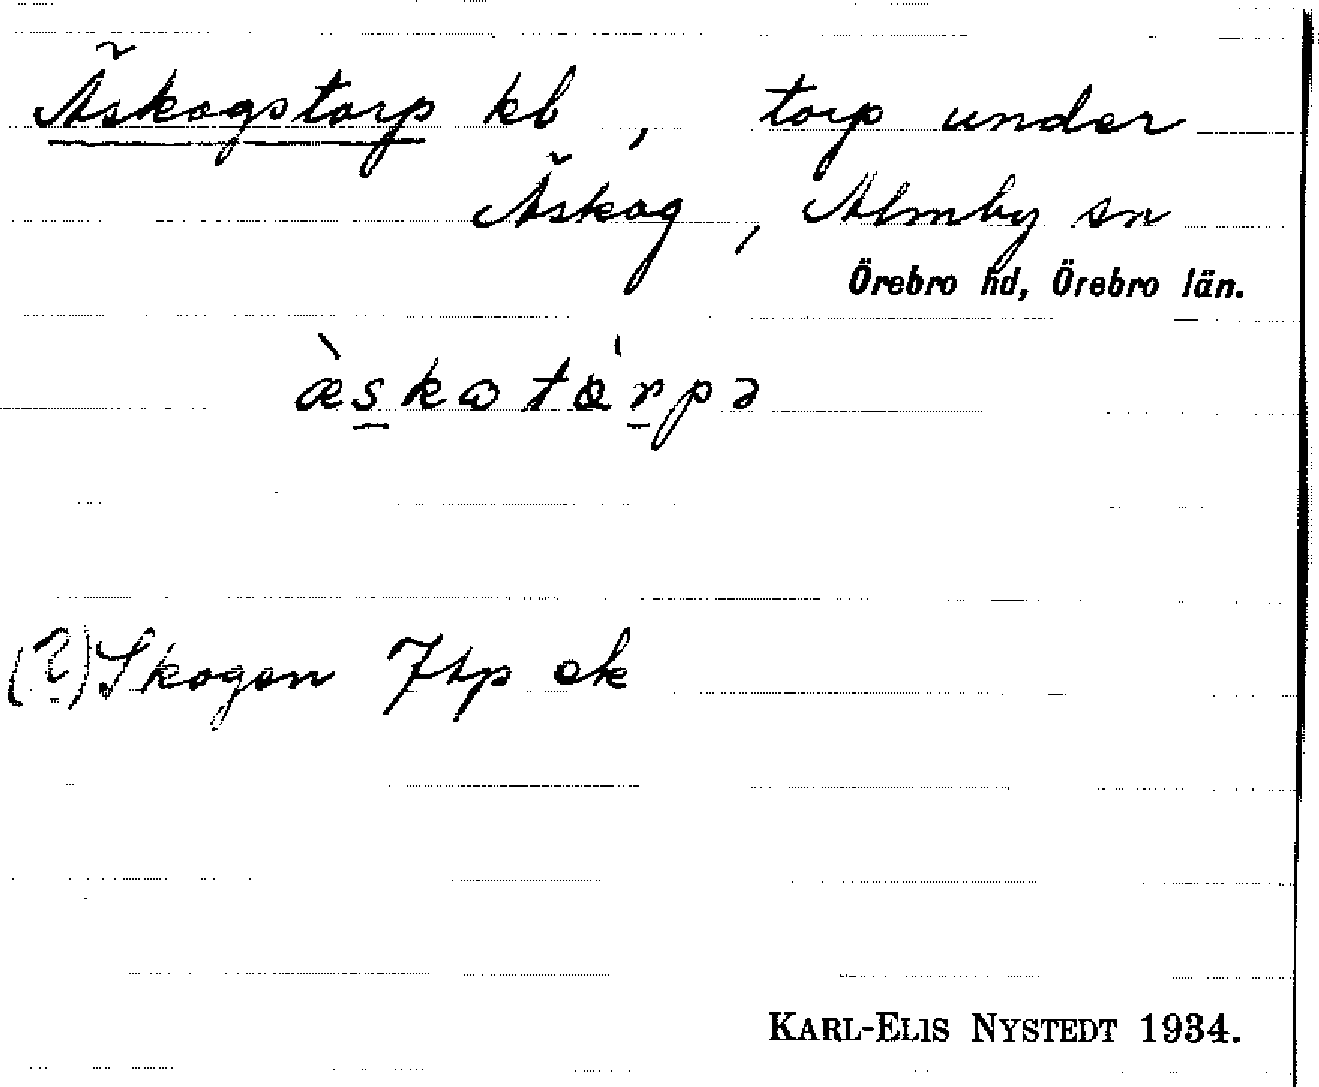 Äskogstorp kb, torp under
Äskog, Almby sn
Örebro hd, Örebro län.
æ̀skotɑ́rpə
(?) Skogen Jtp ek
KARL-ELIS NYSTEDT 1934.